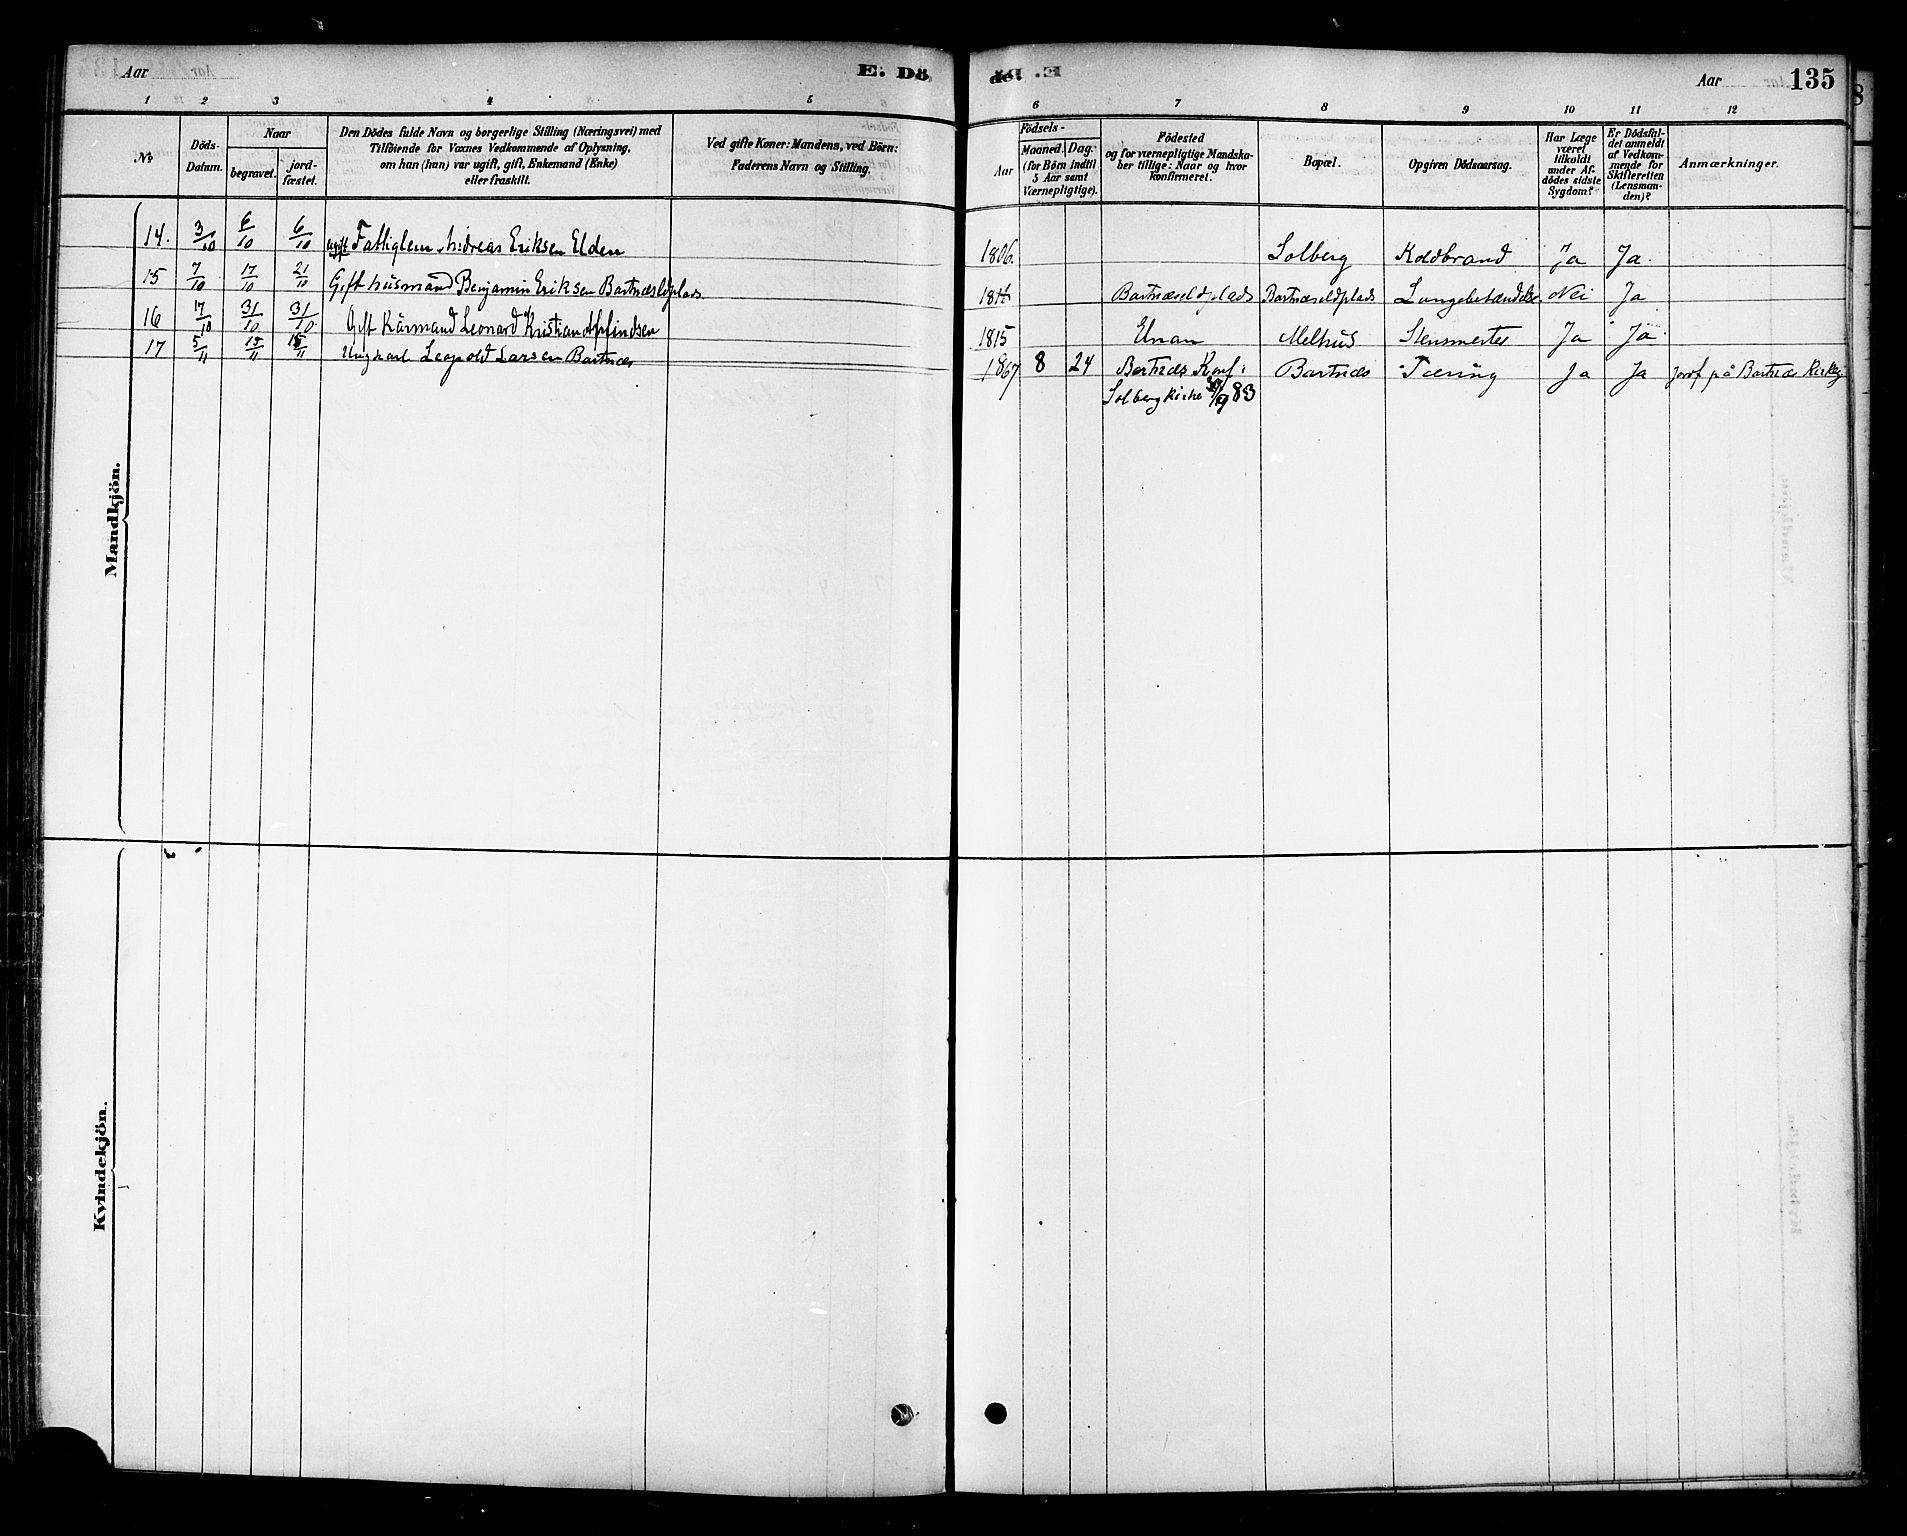 Aar E. Dö-
de. E. Aar 135
1 2 3 4 5
6 7 8 9 10 11 12
No
Döds-Datum.
Naar
begravet.
jord-fæstet.
Den Dödes fulde Navn og borgerlige Stilling (Næringsvei) med
Tilföiende for Voxnes Vedkommende af Oplysning,
om han (hun) var ugift, gift, Enkemand (Enke)
eller fraskilt.
Ved gifte Koner: Mandens, ved Börn:
Faderens Navn og Stilling.
Födsels-
Aar
Maaned.
Dag:
(for Börn indtil
5 Aar samt
Værnepligtige).
Födested
og for værnepligtige Mandska-
ber tillige: Naar og hvor
konfirmeret.
Bopæl.
Opgiven Dödsaarsag.
Har Læge
været
tilkaldt
under Af-
dödes sidste
Sygdom?
Er Dödsfal-
det anmeldt
af Vedkom-
mende for
Skifteretten
(Lensman-
den)?
Anmærkninger.
Mandkjön.
14. 3/10 6/10 6/10 ugift Fattiglem Andreas Eriksen Elden 1806. Solberg Koldbrand Ja Ja.
15 7/10 17/10 21/10 Gift husmand Benjamin Eriksen Bartnæseldplads Bartnæseldplads Bartnæseldplads Lungebetændelse Nei Ja
16 17/10 31/10 31/10 Gift Kårmand Leonard Kristian 1815 Elnan Melhus Stensmerter Ja Ja
17 5/11 15/11 15/11 Ungkarl Leopold Larsen Bartnæs 1867 8 24 Bartnæs Konf: Bartnæs Tæring Ja Ja Jordf på Bartnæs Kirkeg.
Solberg Kirke 30/9 83
Kvindekjön.